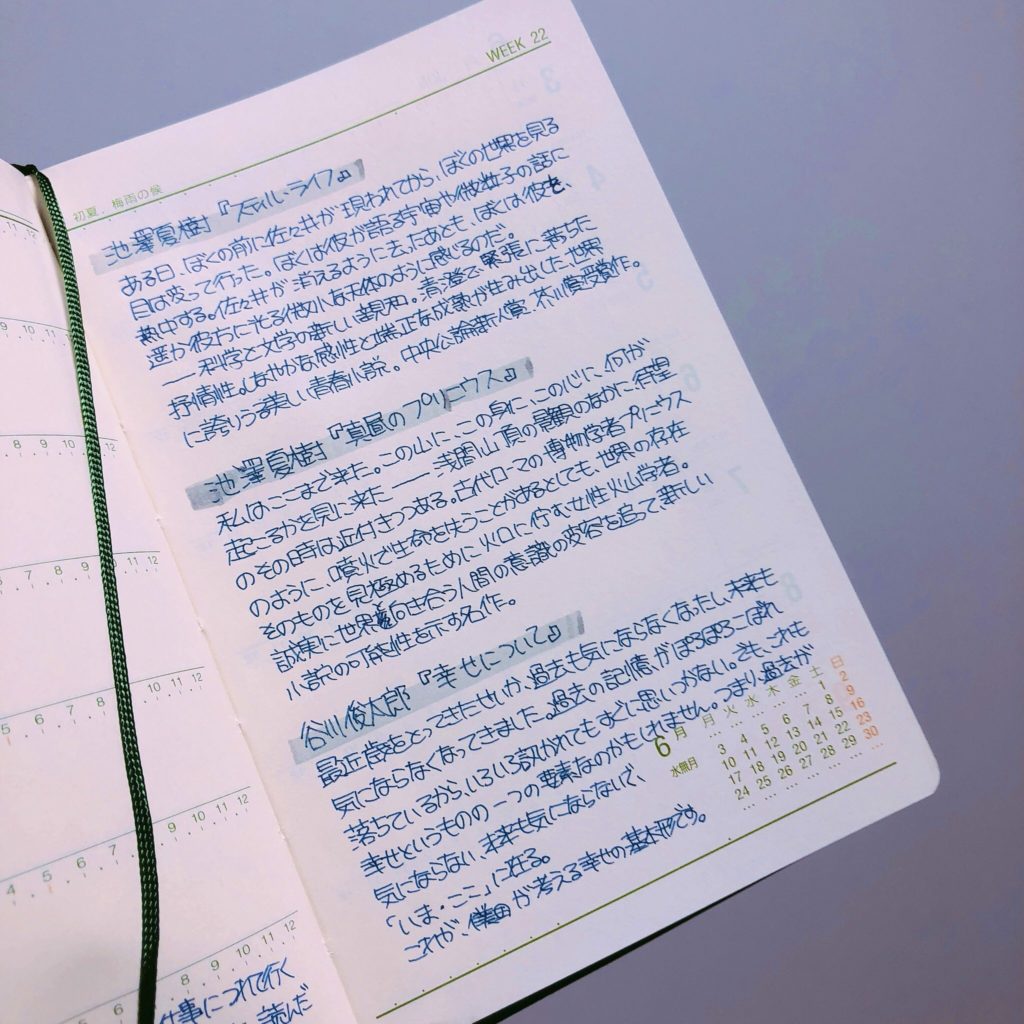 WEEK 22
初夏、梅雨の候
池澤夏樹『スティル・ライフ』
ある日、ぼくの前に佐々井が現われてから、ぼくの世界を見る
目は変って行った。ぼくは彼が語る宇宙や微粒子の話に
熱中する。佐々井が消えるように去ったあとも、ぼくは彼を、
遥か彼方に光る微小な天体のように感じるのだ。
――科学と文学の新しい親和。清澄で緊張に満ちた
抒情性。しなやかな感性と端正な成熟が生み出した世界
に誇りうる美しい青春小説。中央公論新人賞、芥川賞受賞作。
池澤夏樹『真昼のプリニウス』
私はここまで来た。この山に、この身に、この心に、何が
起こるかを見に来た――浅間山頂の景観のなかに待望
のその時は近付きつつある。古代ローマの博物学者プリニウス
のように、噴火で生命を失うことがあるとしても、世界の存在
そのものを見極めるために火口に佇む女性火山学者。
誠実に世界と向き合う人間の意識の変容を追って新しい
小説の可能性を示す名作。
谷川俊太郎『幸せについて』
最近歳をとってきたせいか、過去も気にならなくなったし、未来も
気にならなくなってきました。過去の記憶がぽろぽろこぼれ
落ちているから、いろいろ訊かれてもすぐに思いつかない。でも、これも
幸せというものの一つの要素なのかもしれません。つまり、過去が
気にならない、未来も気にならないで、
「いま・ここ」に在る。
これが、僕が考える幸せの基本形です。
6月
水無月
月 火 水 木 金 土 日
1 2
3 4 5 6 7 8 9
10 11 12 13 14 15 16
17 18 19 20 21 22 23
24 25 26 27 28 29 30
9 10 11 12
8 9 10 11 12
7 8 9 10 11 12
5 6 7 8 9 10 11 12
4 5 6 7 8 9 10 11 12
5 6 7 8 9 10 11 12
仕事につれて行く
読んだ